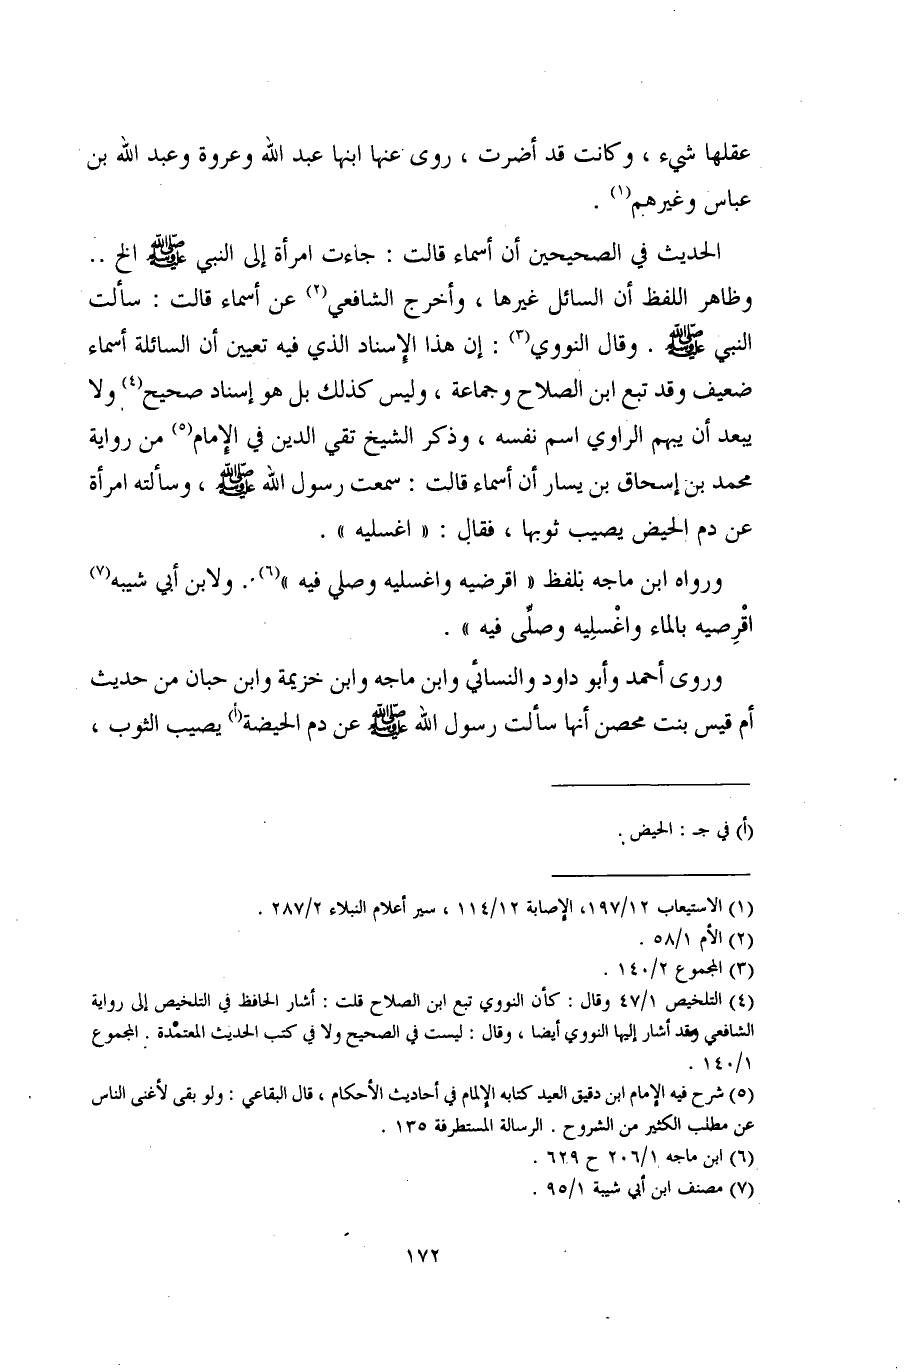 عقلها شيء ، وكانت قد أضرت ، روى عنها ابنها عبد الله وعروة وعبد الله بن
عباس وغيرهم(١) .
الحديث في الصحيحين أن أسماء قالت : جاءت امرأة إلى النبي ﷺ الخ ..
وظاهر اللفظ أن السائل غيرها ، وأخرج الشافعي(٢) عن أسماء قالت : سألت
النبي ﷺ . وقال النووي(٣) : إن هذا الإسناد الذي فيه تعيين أن السائلة أسماء
ضعيف وقد تبع ابن الصلاح وجماعة ، وليس كذلك بل هو إسناد صحيح(٤) ولا
يبعد أن يبهم الراوي اسم نفسه ، وذكر الشيخ تقي الدين في الإمام(٥) من رواية
محمد بن إسحاق بن يسار أن أسماء قالت : سمعت رسول الله ﷺ ، وسألته امرأة
عن دم الحيض يصيب ثوبها ، فقال : « اغسليه » .
ورواه ابن ماجه بلفظ « اقرضيه واغسليه وصلي فيه »(٦) . ولابن أبي شيبه(٧)
اقْرِصيه بالماء واغْسلِيه وصلِّى فيه » .
وروى أحمد وأبو داود والنسائي وابن ماجه وابن خزيمة وابن حبان من حديث
أم قيس بنت محصن أنها سألت رسول الله ﷺ عن دم الحيضة(أ) يصيب الثوب ،
(أ) في جـ : الحيض .
(١) الاستيعاب ١٩٧/١٢، الإصابة ١١٤/١٢ ، سير أعلام النبلاء ٢٨٧/٢ .
(٢) الأم ٥٨/١ .
(٣) المجموع ١٤٠/٢ .
(٤) التلخيص ٤٧/١ وقال : كأن النووي تبع ابن الصلاح قلت : أشار الحافظ في التلخيص إلى رواية
الشافعي وقد أشار إليها النووي أيضا ، وقال : ليست في الصحيح ولا في كتب الحديث المعتمدة . المجموع
١٤٠/١ .
(٥) شرح فيه الإمام ابن دقيق العيد كتابه الإلمام في أحاديث الأحكام ، قال البقاعي : ولو بقى لأغنى الناس
عن مطلب الكثير من الشروح . الرسالة المستطرفة ١٣٥ .
(٦) ابن ماجه ٢٠٦/١ ح ٦٢٩ .
(٧) مصنف ابن أبي شيبة ٩٥/١ .
١٧٢